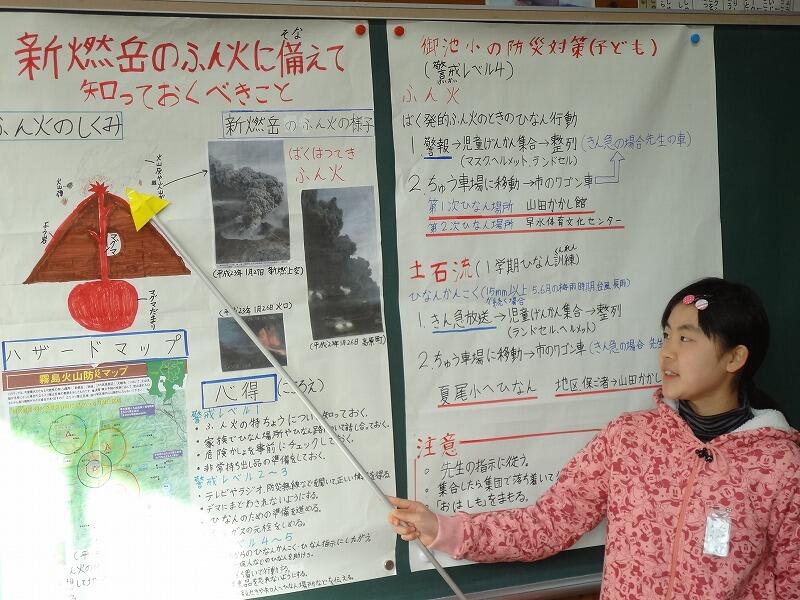 新燃岳のふん火に備えて
そな
知っておくべきこと
ふん火のしくみ
新燃岳のふん火の様子
ばくはつてき
ふん火
火山灰や火山
よう岩
マグマ
マグマだまり
(平成23年1月27日 新燃上空)
1月26日 火口)
(平成23年1月26日 高原町)
ハザードマップ
霧島火山防災マップ
心得(こころえ)
警戒レベル1
・ふん火の特ちょうについて知っておく。
・家族でひなん場所やひなん路について話し合っておく。
・危険かしょを事前にチェックしておく。
・非常持ち出し品の準備をしておく。
警戒レベル2〜3
・テレビやラジオ、防災無線などを聞いて正しい情報を得る
・デマにまどわされないようにする。
・ひなんのための準備を進める。
ガスの元栓をしめる。
レベル4〜5
御池小の防災対策(子ども)
(警戒レベル4)
ふん火
ばく発的ふん火のときのひなん行動
1.警報→児童げんかん集合→整列(きん急の場合先生の車)
(マスク、ヘルメット、ランドセル)
2.ちゅう車場に移動→市のワゴン車
第1次ひなん場所 山田かかし館
第2次ひなん場所 早水体育文化センター
土石流(1学期ひなん訓練)
くんれん
ひなんかんこく(15mm以上 5、6月の梅雨時期、台風、長雨)
が続く場合
1.きん急放送→児童げんかん集合→整列
(ランドセル、ヘルメット)
2.ちゅう車場に移動→市のワゴン車(きん急の場合 先生
夏尾小へひなん 地区、保ご者→山田かかし
注意
・先生の指示に従う。
・集合したら集団で落ち着いて
・「おはしも」をまもる。